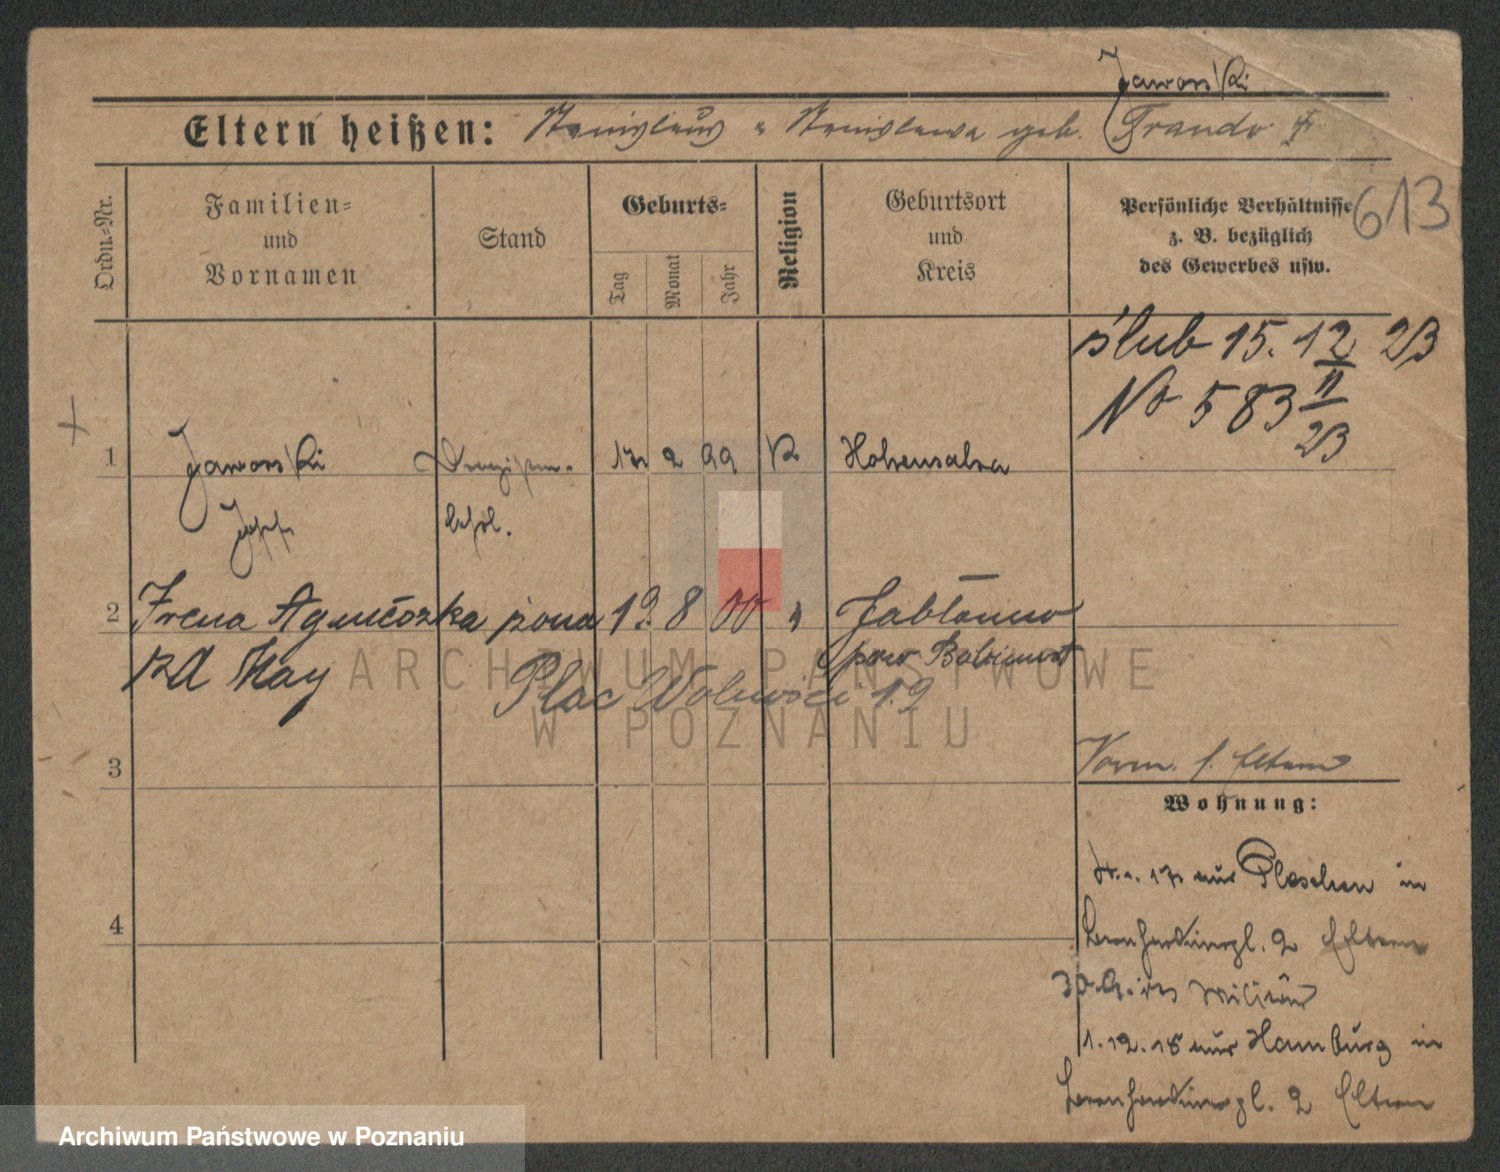 Jaworski
Eltern heißen: Stanislaus u Stanislawa geb. Frando
613
Ordn.-Nr.
Familien-
und
Vornamen
Stand
Geburts-
Tag
Monat
Jahr
Religion
Geburtsort
und
Kreis
Persönliche Verhältnisse
z. B. bezüglich
des Gewerbes usw.
ślub 15. 12 23
No 583 II
23
1 Jaworski 17 2 99 K Hohensalza
Josef
2 Irena Agnieszka żona 19. 8 00 " Jabłonno
zd May pow Babimost
Plac Wolności 19
ARCHIWUM PAŃSTWOWE
W POZNANIU
3
Vorm. s. Eltern
Wohnung:
17 aus Pleschen in
Bernhardinerpl. 2 Eltern
Militär
1.12.18 aus Hamburg in
Bernhardinerpl. 2 Eltern
4
Archiwum Państwowe w Poznaniu